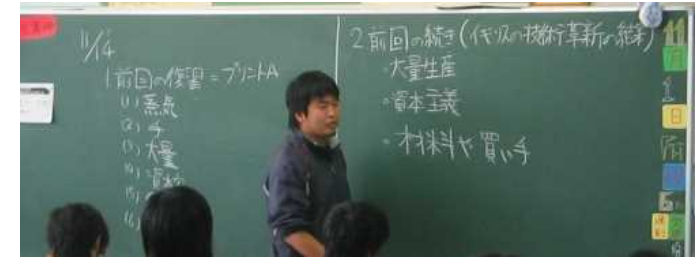 11/14
1 前回の復習=プリントA
(1) 蒸気
(2) 手
(3) 大量
(4) 資本
(5)
(6)
2 前回の続き(イギリスの技術革新の結果)
・大量生産
・資本主義
・材料や買い手
11
月
日